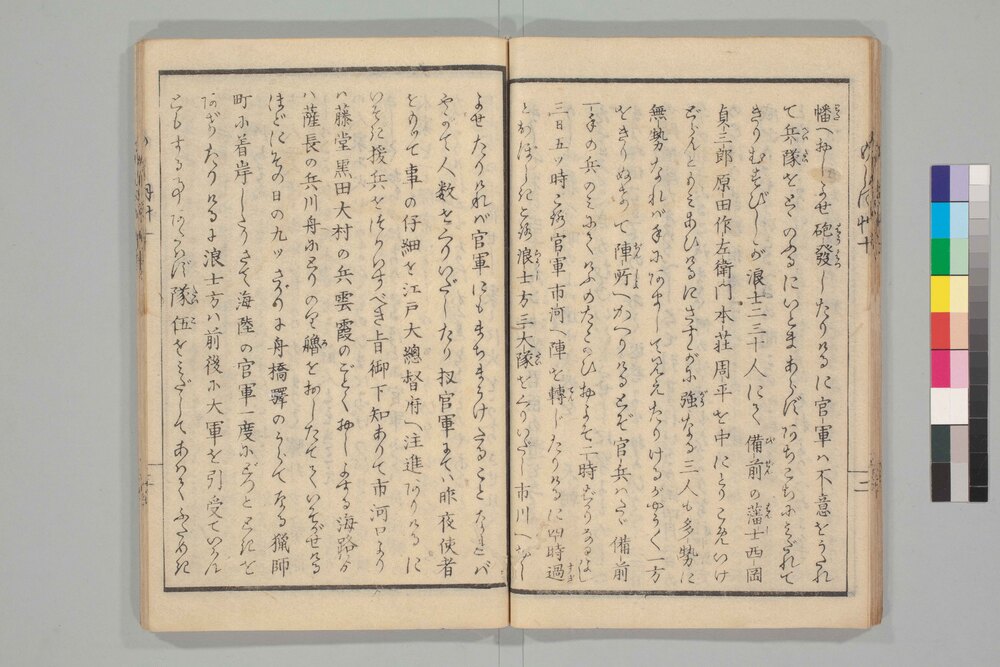 幡へおしよせ砲發したりけるに官軍ハ不意をうたれ
て兵隊をとゝのふるにいとまあらずあちこちにみだれて
きりむすびしが浪士二三十人にて備前の藩士西岡
貞三郎原田作左衛門本荘周平を中にとりこめいけ
どらんとかこみあひけるにさすがに強なる三人も多勢に
無勢なれバ手にあまして見えたりけるがやうやく一方
をきりぬけて陣所へかへりけるとぞ官兵ハたゞ備前
一手の兵のみにてくふのたゝかひおよそ一時ばかりなるよし
三日五ツ時ころ官軍市河へ陣を轉じたりけるに四時過
とおぼしきころ浪士方三大隊をくりいだし市川へおし
よせたりけれバ官軍にもまちまうけたることなれバ
やがて人数をくりいだしたり扨官軍にてハ昨夜使者
をもつて事の仔細を江戸大總督府へ注進ありけるに
いそぎ援兵をつかハすべき旨御下知ありて市河口より
ハ藤堂黒田大村の兵雲霞のごとくおしよする海路より
ハ薩長の兵川舟にとりのり艪をおしたてゝいそがせける
ほどにその日の九ツさがりに舟橋驛のうらてなる獵師
町に着岸したりさて海陸の官軍一度にどつとときを
あげたりけるに浪士方ハ前後に大軍を引受ていかん
ともする事あたハず隊伍をみだしてあわてふためき